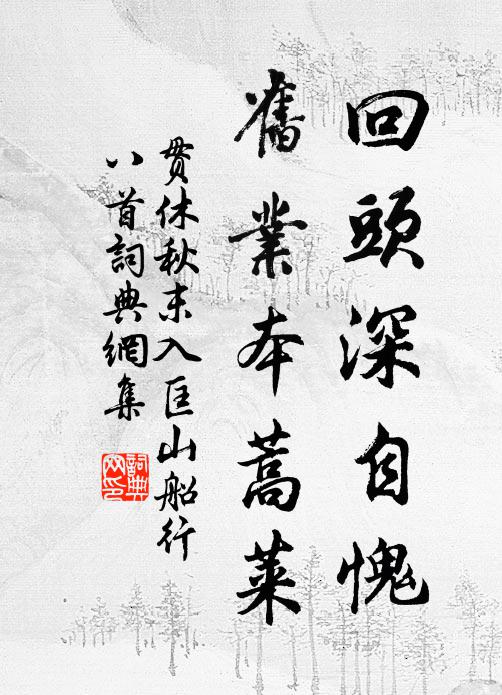 回頭深自愧
舊業本蒿萊
貫休秋末入匡山船行
八首詞典網集
詞典
网印